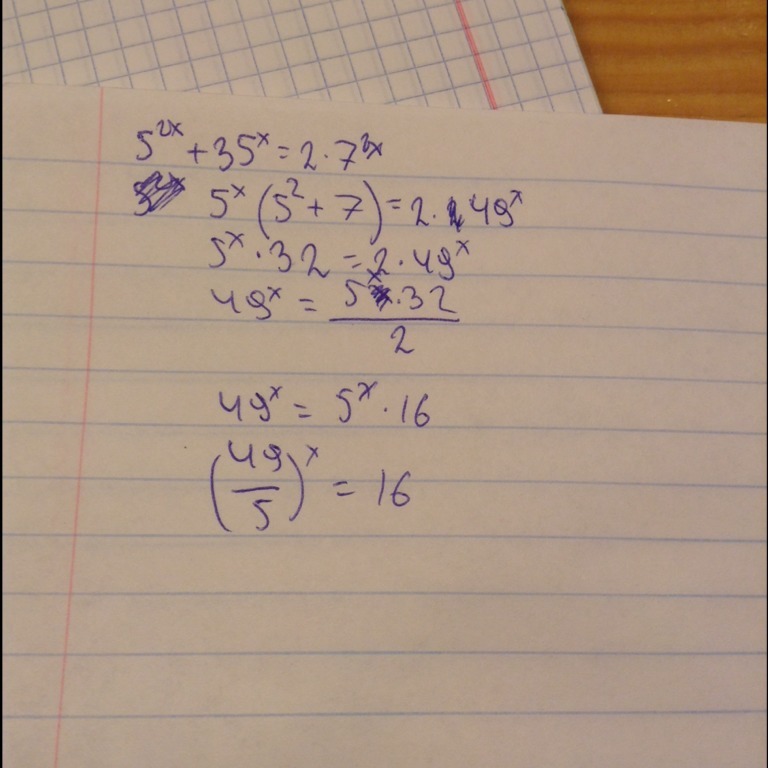 5^{2x} + 35^x = 2 · 7^{2x}
5^x (5^2 + 7) = 2 · 49^x
5^x · 32 = 2 · 49^x
49^x = \frac{5^x · 32}{2}
49^x = 5^x · 16
(\frac{49}{5})^x = 16